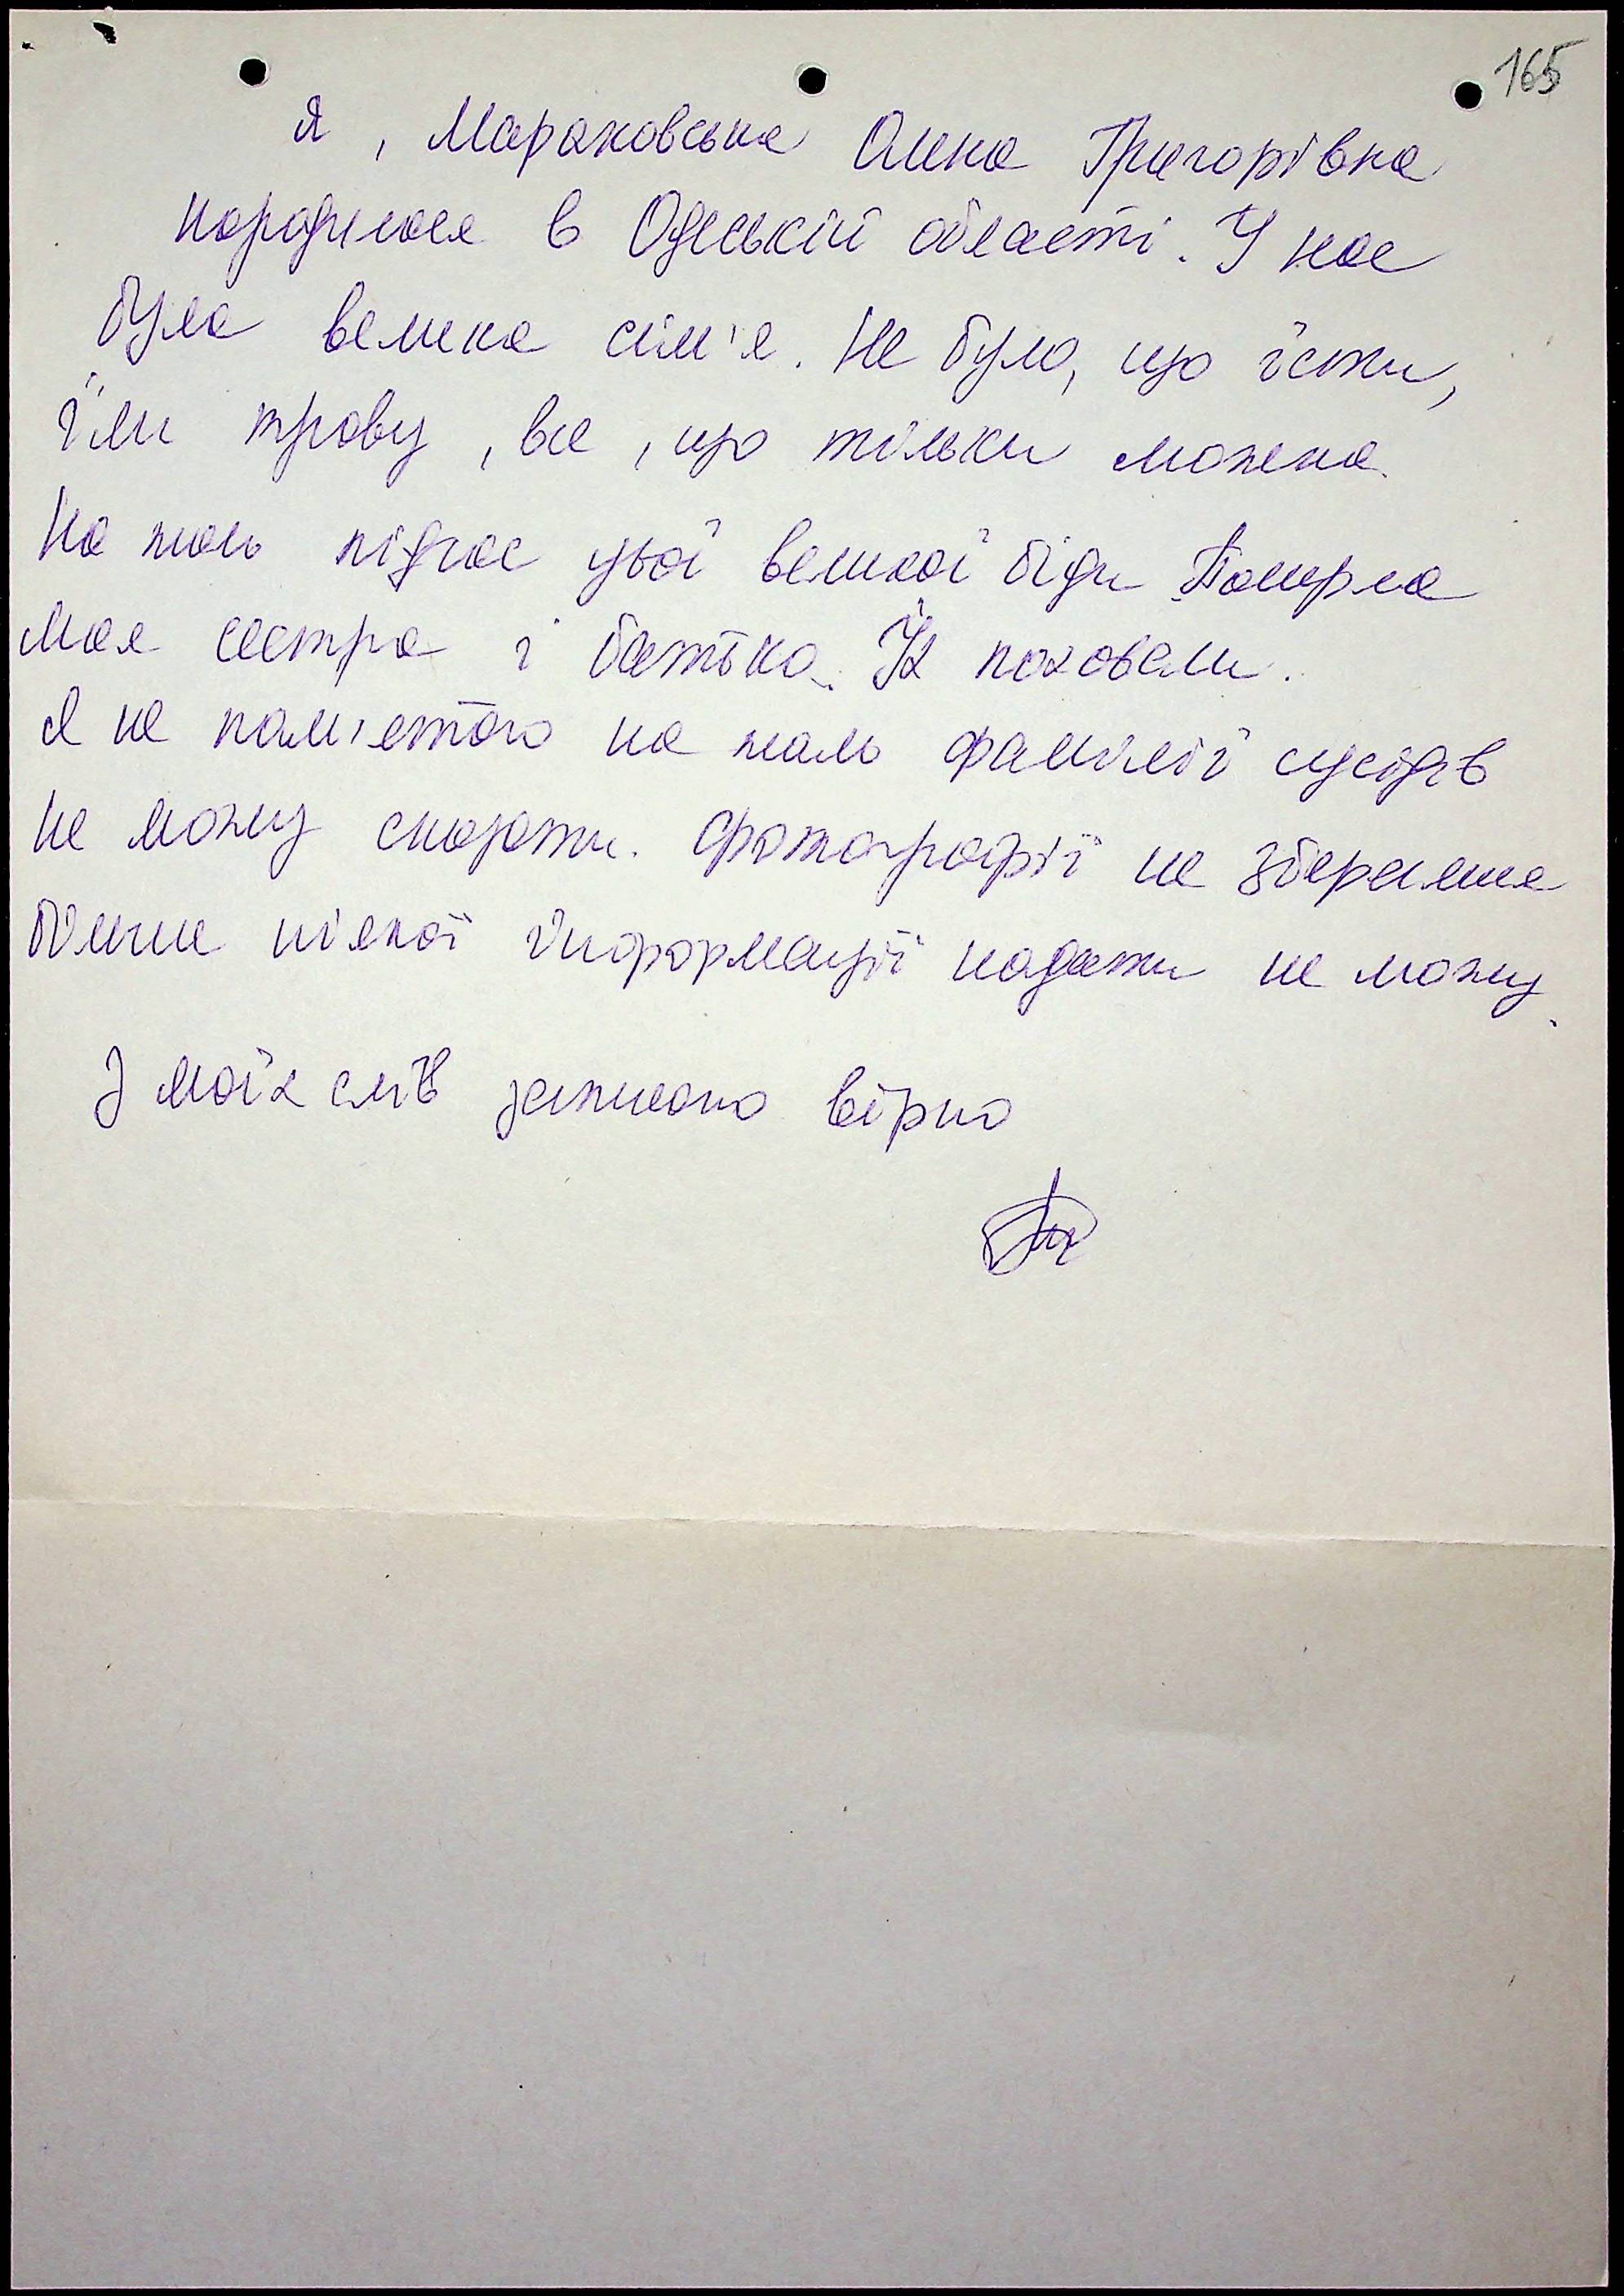 165
Я, Мараховська Анна Григорівна
народилася в Одеській області. У нас
була велика сім'я. Не було, що їсти,
їли траву, все, що тільки можна.
На жаль під час цьої великої біди Померла
моя сестра і батько. Їх поховали.
Я не пам'ятаю на жаль фамілії сусідів
не можу сказати. Фотографії не збереглися
більше ніякої інформації надати не можу.
З моїх слів записано вірно